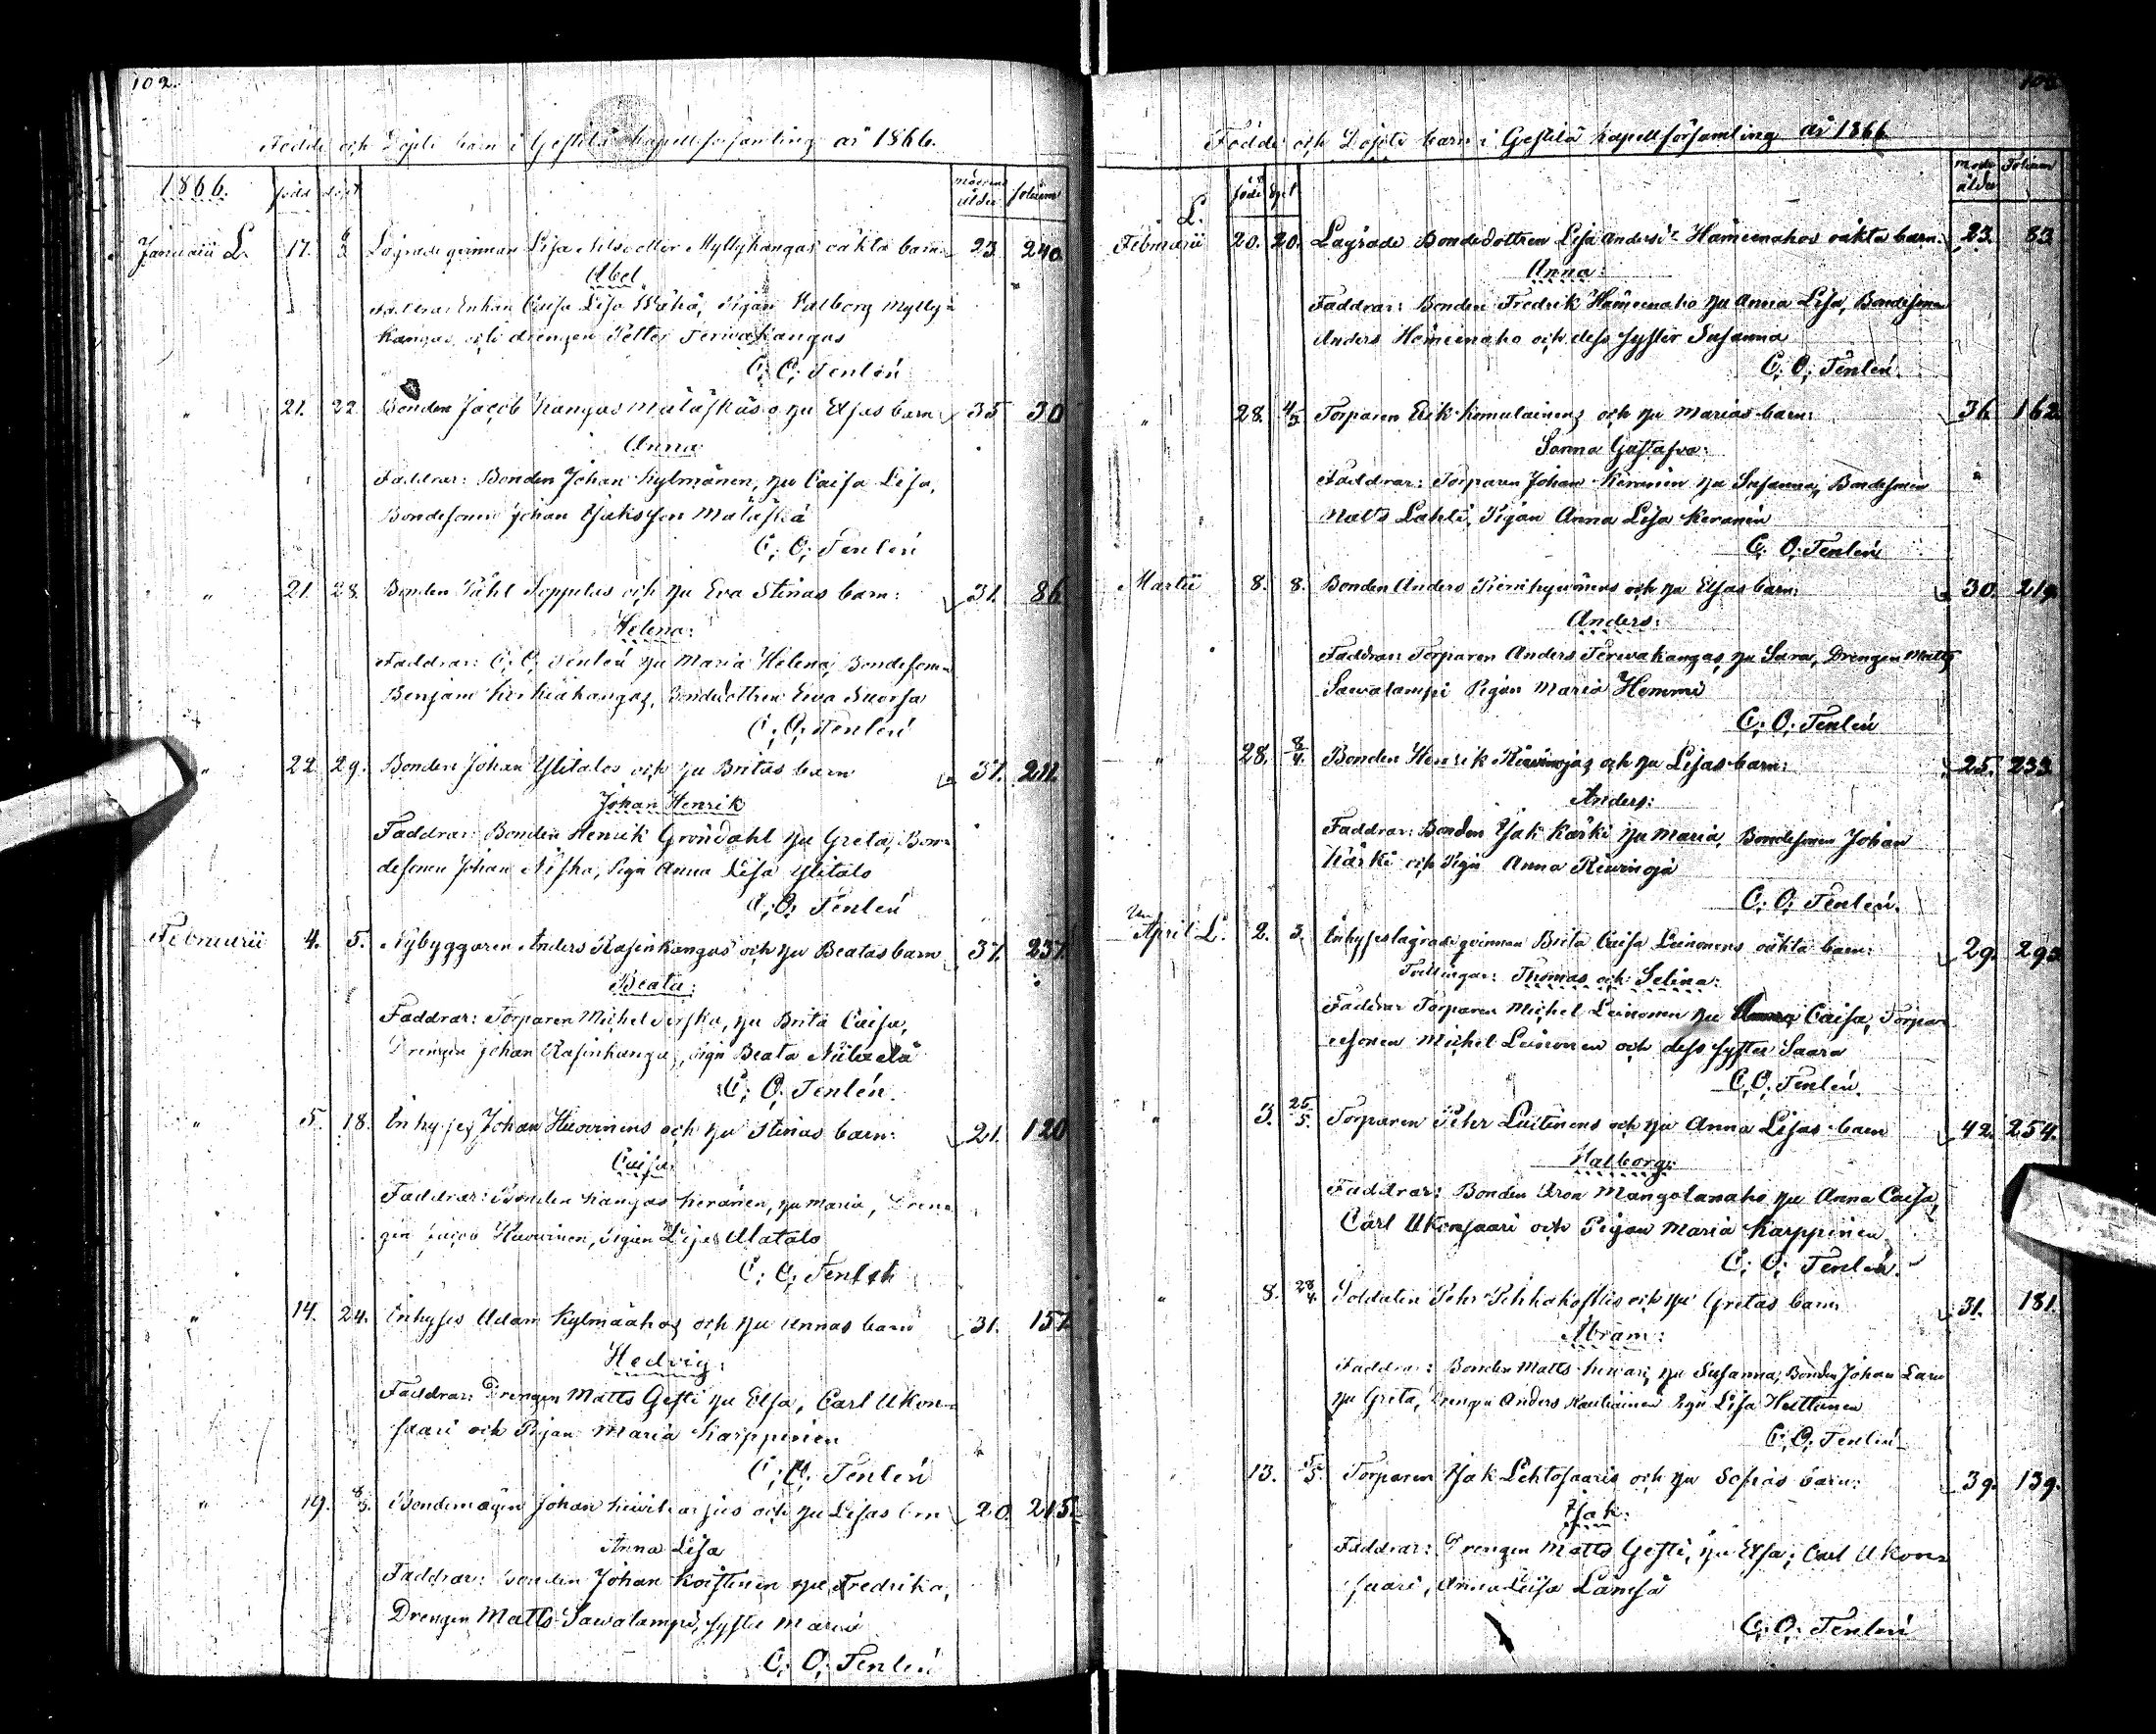 102.
Födde och Döpte barn i Gestilä kapellförsamling år 1866.
1866. född döpt moderns ålder folium
Januarii L. 17. Lägrade qvinnan Lisa Nilsdotter Myllykangas oäkta barn: 23. 240.
Abel
Faddrar: Enkan Caisa Lisa Wähä, Pigan Walborg Mylly=
kangas och drengen Petter Terwakangas
C: O: Tenlén
" 21. 22. Bonden Jacob Kangas Mätäskäs o hu Elsas barn: 35 30
Anna
Faddrar: Bonden Johan Kylmänen, hu Caisa Lisa,
Bondesonen Johan Isaksson Mätäskä
C: O: Tenlén
" 21. 28. Bonden Påhl Seppälas och hu Eva Stinas barn: 31. 86
Helena:
Faddrar: C: O: Tenlén hu Maria Helena, Bondesonen
Benjam Kirkiäkangas, Bondedottren Ewa Suorsa
C: O: Tenlén
" 22. 29. Bonden Johan Ylitalos och hu Britas barn 37. 211.
Johan Henrik
Faddrar: Bonden Henrik Gröndahl hu Greta, Bon=
desonen Johan Niska, Pign Anna Lisa Ylitalo
C: O: Tenlén
Februarii 4. 5. Nybyggaren Anders Rasinkangas och hu Beatas barn 37. 237.
Beata:
Faddrar: Torparen Michel hu Brita Caisa,
Drengen Johan Rasinkangas, Pign Beata
C: O: Tenlén.
" 5. 18. Inhyses Johan Huovinens och hu Stinas barn: 21. 120
Caisa
Faddrar: Bonden Kangas Keränen, hu Maria, Dren=
gen Huovinen, Pigan Lisa Alatalo
C: O: Tenlén
" 14. 24. Inhyses Adam Kylmäahos och hu Annas barn 31. 157
Hedvig:
Faddrar: Drengen Matts Gesti hu Elsa, Carl Ukon=
saari och Pigan Maria Karppinen
C: O: Tenlén
" 19. 8/3. Bondemågen Johan Kiviharjus och hu Lisas brn 20. 215.
Anna Lisa
Faddrar: Bonden Johan Koistinen hu Fredrika,
Drengen Matts Sawalampi, syster Maria
C: O: Tenlén
Födde och Döpte barn i Gestilä kapellförsamling år 1866
född döpt moders ålder Folium
L.
Februarii 20. 20. Lägrade Bondedottren Lisa Andersdr Hämeenahos oäkta barn: 23. 83
Anna:
Faddrar: Bonden Fredrik Hämeenaho hu Anna Lisa, Bondesonen
Anders Hämeenaho och dess syster Susanna
C: O: Tenlén.
" 28. 4/3 Torparen Erik Komulainens och hu Marias barn: 36. 162
Sanna Gustafva:
Faddrar: Torparen Johan Keränen hu Susanna, Bondesonen
Matts Lahti, Pigan Anna Lisa Keränen
C: O: Tenlén
Martii 8. 8. Bonden Anders och hu Elsas barn: 30. 219.
Anders:
Faddrar: Torparen Anders Terwakangas, hu Sara, Drengen Matts
Sawalampi Pigan Maria Hemmi
C: O: Tenlén
" 28. 8/4. Bonden Henrik Riuvinojas och hu Lisas barn: 25. 233.
Anders:
Faddrar: Bonden Isak Kärki hu Maria, Bondesonen Johan
Kärki och Pign Anna Riuvinoja
C: O: Tenlén.
April L. 2. 3. Inhyseslägrade qvinnan Brita Caisa Leinonens oäkta barn: 29. 292
Tvillingar: Thomas och Selina:
Faddrar Torparen Michel Leinonen hu Caisa, Torpar=
esonen Michel Leinonen och dess syster Saara
C: O: Tenlén.
" 3. 25/5. Torparen Pehr Laitinens och hu Anna Lisas barn 42. 254.
Walborg:
Faddrar: Bonden Aron Mangolanaho hu Anna Caisa,
Carl Ukonsaari och Pigan Maria Karppinen
C: O: Tenlén.
" 8. 28/4. Soldaten Pehr Pihkakoskis och hu Gretas barn 31. 181.
Abram:
Faddrar: Bonden Matts hu Susanna, Bonden Johan Laru
hu Greta, Drengen Anders Rautiainen Pign Lisa Huttunen
C: O: Tenlén
13. 5/5. Torparen Isak Lehtosaaris och hu Sofias barn: 39. 139.
Isak:
Faddrar: Drengen Matts Gesti, hu Elsa; Carl Ukon=
saari, Anna Caisa Lämsä
C: O: Tenlén